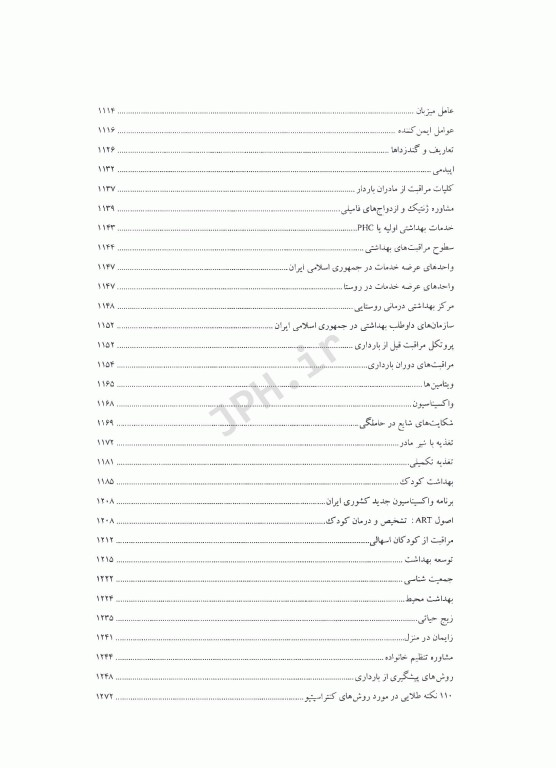 عامل میزبان ........................ ۱۱۱۴
عوامل ایمن‌کننده ........................ ۱۱۱۶
تعاریف و گندزداها ........................ ۱۱۲۶
اپیدمی ........................ ۱۱۳۲
کلیات مراقبت از مادران باردار ........................ ۱۱۳۷
مشاوره ژنتیک و ازدواج‌های فامیلی ........................ ۱۱۳۹
خدمات بهداشتی اولیه یا PHC ........................ ۱۱۴۳
سطوح مراقبت‌های بهداشتی ........................ ۱۱۴۴
واحدهای عرضه خدمات در جمهوری اسلامی ایران ........................ ۱۱۴۷
واحدهای عرضه خدمات در روستا ........................ ۱۱۴۷
مرکز بهداشتی درمانی روستایی ........................ ۱۱۴۸
سازمان‌های داوطلب بهداشتی در جمهوری اسلامی ایران ........................ ۱۱۵۲
پروتکل مراقبت قبل از بارداری ........................ ۱۱۵۲
مراقبت‌های دوران بارداری ........................ ۱۱۵۴
ویتامین‌ها ........................ ۱۱۶۵
واکسیناسیون ........................ ۱۱۶۸
شکایت‌های شایع در حاملگی ........................ ۱۱۶۹
تغذیه با شیر مادر ........................ ۱۱۷۲
تغذیه تکمیلی ........................ ۱۱۸۱
بهداشت کودک ........................ ۱۱۸۵
برنامه واکسیناسیون جدید کشوری ایران ........................ ۱۲۰۸
اصول ART : تشخیص و درمان کودک ........................ ۱۲۰۸
مراقبت از کودکان اسهالی ........................ ۱۲۱۲
توسعه بهداشت ........................ ۱۲۱۵
جمعیت شناسی ........................ ۱۲۲۲
بهداشت محیط ........................ ۱۲۲۴
زیج حیاتی ........................ ۱۲۳۵
زایمان در منزل ........................ ۱۲۴۱
مشاوره تنظیم خانواده ........................ ۱۲۴۴
روش‌های پیشگیری از بارداری ........................ ۱۲۴۸
۱۱۰ نکته طلایی در مورد روش‌های کنتراسپتیو ........................ ۱۲۷۲
JPH.ir